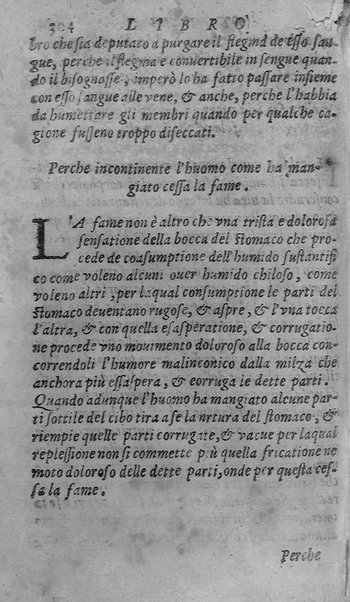 304 LIBRO
bro che sia deputato a purgare il flegma de esso san
gue, perche il flegma e convertibile in sengue quan
do il bisognasse, imperò lo ha fatto passare insieme
con esso sangue alle vene, & anche, perche l'habbia
da humettare gli membri quando per qualche ca
gione fusseno troppo diseccati.
Perche incontinente l'huomo come ha man
giato cessa la fame.
LA fame non è altro che vna trista e dolorosa
sensatione della bocca del stomaco che pro
cede de coasumptione dell'humido sustantifi
co come voleno alcuni ouer humido chiloso, come
voleno altri, per laqual consumptione le parti del
stomaco deuentano rugose, & aspre, & l'vna tocca
l'altra, & con quella esasperatione, & corrugatio-
ne procede vno mouimento doloroso alla bocca con-
correndoli l'humore malinconico dalla milza che
anchora più essaspera, & corruga le dette parti.
Quando adunque l'huomo ha mangiato alcune par
ti sottile del cibo tira a se la nrtura del stomaco, &
riempie quelle parti corrugate, & vacue per laqual
replessione non si commette più quella fricatione ne
moto doloroso delle dette parti, onde per questa ces-
sa la fame.
Perche